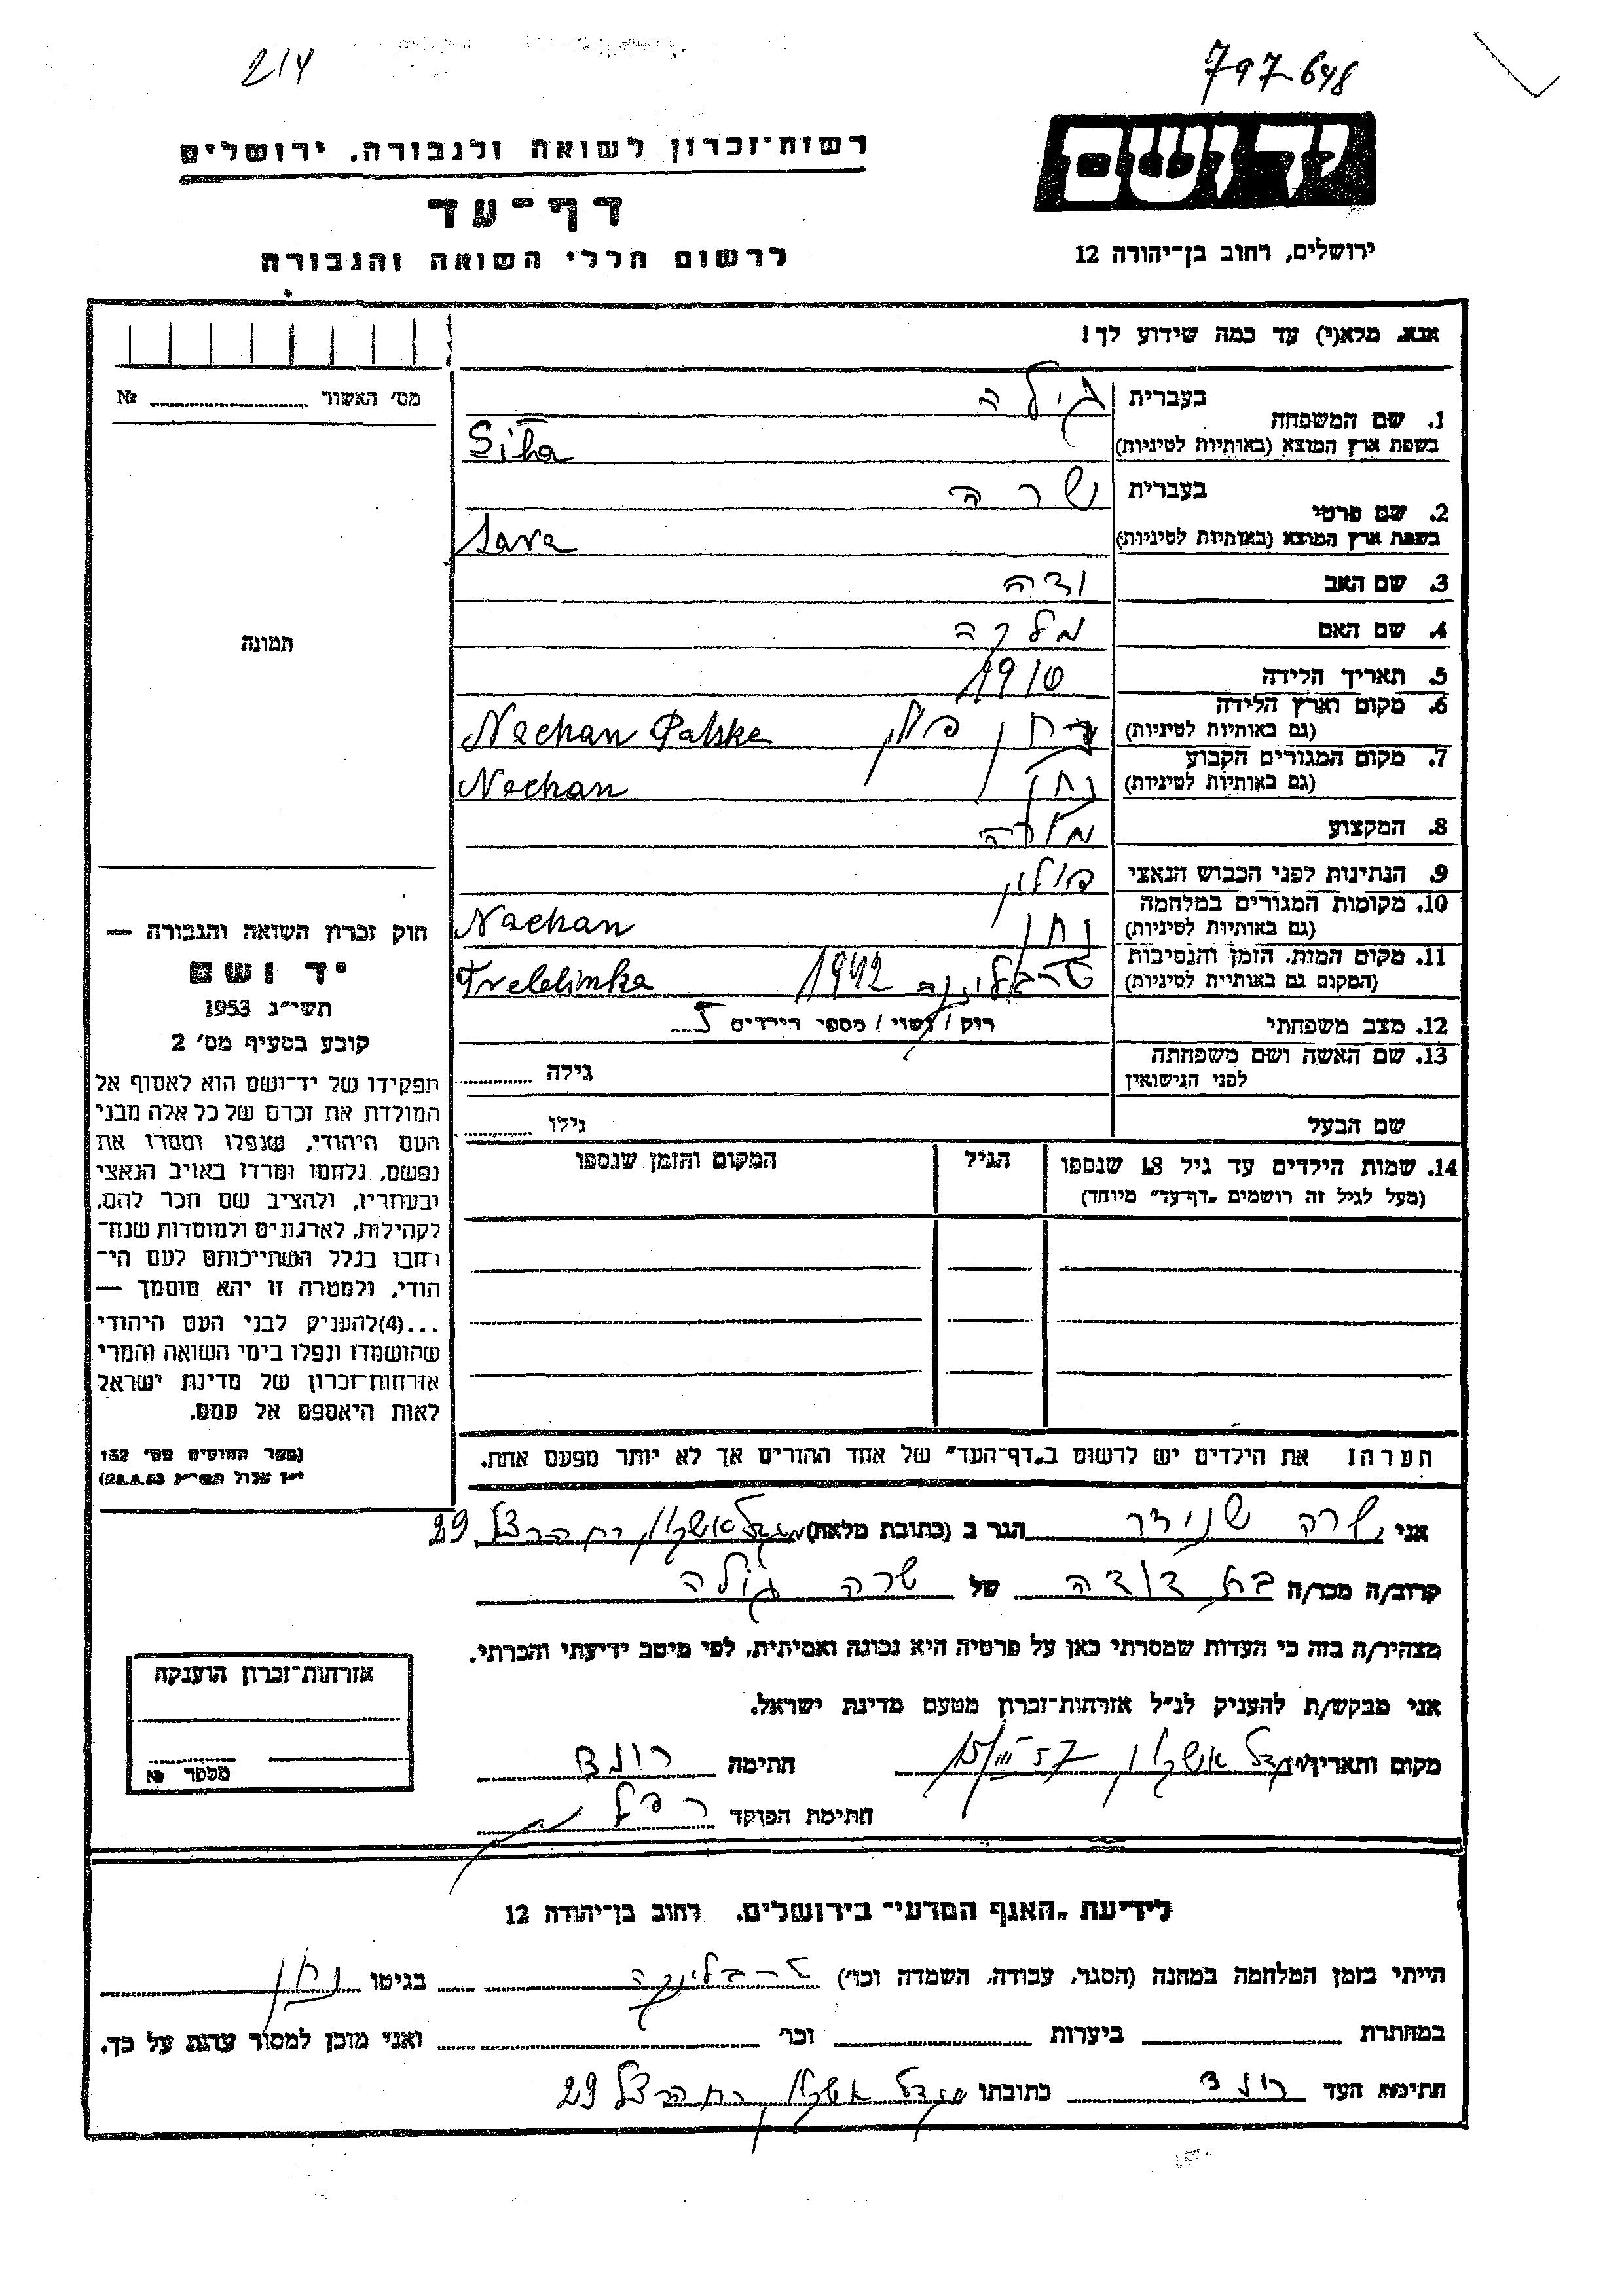 214
797648
רשות־זכרון לשואה ולגבורה, ירושלים
יד ושם
דף־עד
לרשום חללי השואה והגבורה
ירושלים, רחוב בן־יהודה 12
אנא, מלא(י) עד כמה שידוע לך!
מס׳ האשור № 
1. שם המשפחה
בעברית
בשפת ארץ המוצא (באותיות לטיניות)
2. שם פרטי
בעברית שרה
בשפת ארץ המוצא (באותיות לטיניות) Sara
3. שם האב
4. שם האם מלכה
5. תאריך הלידה 1910
6. מקום וארץ הלידה
(גם באותיות לטיניות) Nachan Polska
7. מקום המגורים הקבוע
(גם באותיות לטיניות) נחן Nachan
8. המקצוע מורה
9. הנתינות לפני הכבוש הנאצי פולין
10. מקומות המגורים במלחמה
(גם באותיות לטיניות) נחן Nachan
11. מקום המות, הזמן והנסיבות
(המקום גם באותיות לטיניות) טרבלינקה 1942 Treblinka
12. מצב משפחתי רוק / נשוי / מספר הילדים
13. שם האשה ושם משפחתה
לפני הנישואין גילה
שם הבעל גילו
14. שמות הילדים עד גיל 18 שנספו
(מעל לגיל זה רושמים „דף־עד" מיוחד)
הגיל
המקום והזמן שנספו
הערה! את הילדים יש לרשום ב„דף־העד" של אחד ההורים אך לא יותר מפעם אחת.
תמונה
חוק זכרון השואה והגבורה —
יד ושם
תשי״ג 1953
קובע בסעיף מס׳ 2
תפקידו של יד־ושם הוא לאסוף אל
המולדת את זכרם של כל אלה מבני
העם היהודי, שנפלו ומסרו את
נפשם, נלחמו ומרדו באויב הנאצי
ובעוזריו, ולהציב שם וזכר להם,
לקהילות, לארגונים ולמוסדות שנח־
רחבו בגלל השתייכותם לעם הי־
הודי, ולמטרה זו יהא מוסמך —
...(4)להעניק לבני העם היהודי
שהושמדו ונפלו בימי השואה והמרי
אזרחות־זכרון של מדינת ישראל
לאות היאספם אל עמם.
(ספר החוקים מס׳ 132
י״ז אלול תשי״ג 28.8.53)
אני שרה שניידר הגר ב (כתובת מלאה) מגדל אשקלון רח הרצל 29
קרוב/ה מכר/ה בת דודה של שרה גילה
מצהיר/ה בזה כי העדות שמסרתי כאן על פרטיה היא נכונה ואמיתית, לפי מיטב ידיעתי והכרתי.
אני מבקש/ת להעניק לנ״ל אזרחות־זכרון מטעם מדינת ישראל.
מקום ותאריך מגדל אשקלון 15/III 57 חתימה
חתימת הפוקד
אזרחות־זכרון הוענקה
מספר №
לידיעת „האגף המדעי" בירושלים, רחוב בן־יהודה 12
הייתי בזמן המלחמה במחנה (הסגר, עבודה, השמדה וכו׳) טרבלינקה בגיטו נחן
במחתרת ביערות וכו׳ ואני מוכן למסור עדות על כך.
חתימת העד כתובתו מגדל אשקלון רח הרצל 29